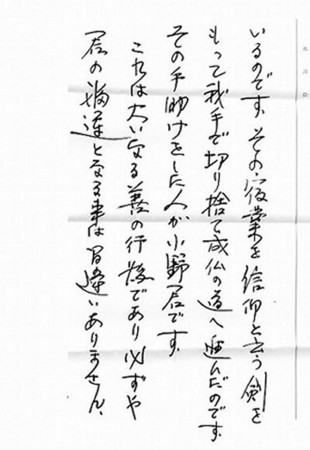 いるのです。その宿業を信仰と云う剣を
もって我手で切り捨て成仏の道へ進んだのです。
その手助けをした人が小野君です。
これは大いなる善の行為であり必ずや
君の福運となる事は間違いありません、